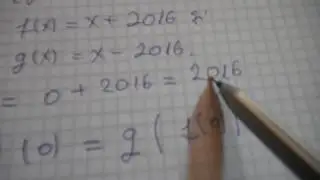 f(x) = x + 2016
g(x) = x - 2016.
= 0 + 2016 = 2016
(0) = g ( f(0)